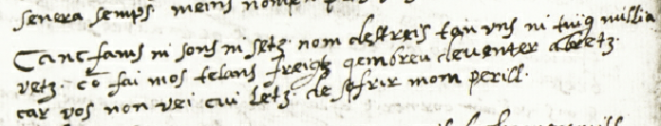 senera semps. meins nom
Canc fams ni sons ni setz. nom destreis tan uns ni
vetz. cō fai mos talans freigz qem breu deventer abretz.
car vos non vei cui letz. de sofrir mom perill.